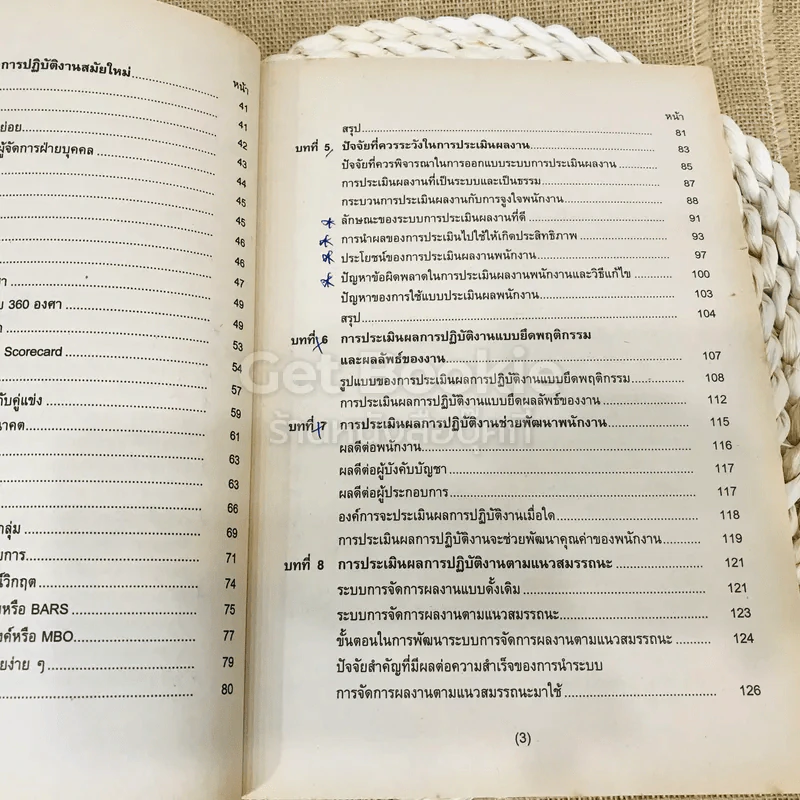 การปฏิบัติงานสมัยใหม่
หน้า
41
41
ย่อย 42
ผู้จัดการฝ่ายบุคคล 43
44
44
45
45
46
46
47
49
360 องศา 49
53
Scorecard 54
57
กับคู่แข่ง 59
61
63
63
66
69
71
74
หรือ BARS 75
หรือ MBO 77
ง่าย ๆ 79
80
หน้า
สรุป 81
บทที่ 5 ปัจจัยที่ควรระวังในการประเมินผลงาน 83
ปัจจัยที่ควรพิจารณาในการออกแบบระบบการประเมินผลงาน 85
การประเมินผลงานที่เป็นระบบและเป็นธรรม 87
กระบวนการประเมินผลงานกับการจูงใจพนักงาน 88
ลักษณะของระบบการประเมินผลงานที่ดี 91
การนำผลของการประเมินไปใช้ให้เกิดประสิทธิภาพ 93
ประโยชน์ของการประเมินผลงานพนักงาน 97
ปัญหาข้อผิดพลาดในการประเมินผลงานพนักงานและวิธีแก้ไข 100
ปัญหาของการใช้แบบประเมินผลพนักงาน 103
สรุป 104
บทที่ 6 การประเมินผลการปฏิบัติงานแบบยึดพฤติกรรม
และผลลัพธ์ของงาน 107
รูปแบบของการประเมินผลการปฏิบัติงานแบบยึดพฤติกรรม 108
การประเมินผลการปฏิบัติงานแบบยึดผลลัพธ์ของงาน 112
บทที่ 7 การประเมินผลการปฏิบัติงานช่วยพัฒนาพนักงาน 115
ผลดีต่อพนักงาน 116
ผลดีต่อผู้บังคับบัญชา 117
ผลดีต่อผู้ประกอบการ 117
องค์การจะประเมินผลการปฏิบัติงานเมื่อใด 118
การประเมินผลการปฏิบัติงานจะช่วยพัฒนาคุณค่าของพนักงาน 119
บทที่ 8 การประเมินผลการปฏิบัติงานตามแนวสมรรถนะ 121
ระบบการจัดการผลงานแบบดั้งเดิม 121
ระบบการจัดการผลงานตามแนวสมรรถนะ 123
ขั้นตอนในการพัฒนาระบบการจัดการผลงานตามแนวสมรรถนะ 124
ปัจจัยสำคัญที่มีผลต่อความสำเร็จของการนำระบบ
การจัดการผลงานตามแนวสมรรถนะมาใช้ 126
(3)
Get Bookie
ร้านหนังสือบุ๊คกี้